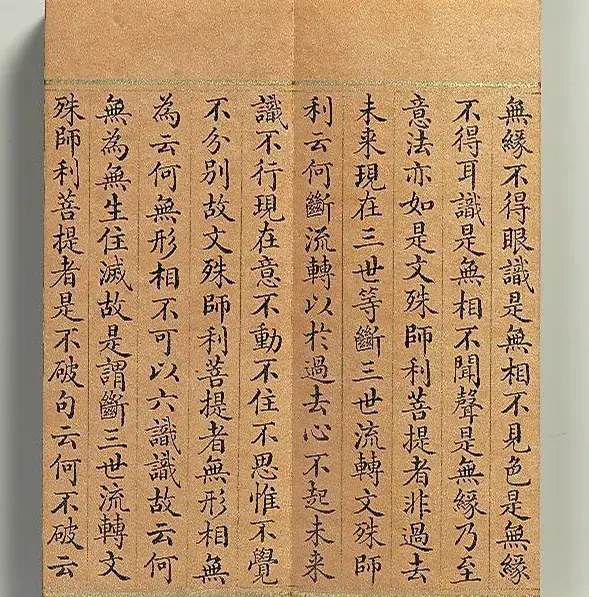 無緣不得眼識是無相不見色是無緣
不得耳識是無相不聞聲是無緣乃至
意法亦如是文殊師利菩提者非過去
未来現在三世等斷三世流轉文殊師
利云何斷流轉以於過去心不起未来
識不行現在意不動不住不思惟不覺
不分別故文殊師利菩提者無形相無
為云何無形相不可以六識識故云何
無為無生住滅故是謂斷三世流轉文
殊師利菩提者是不破句云何不破云